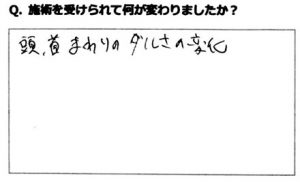 Q. 施術を受けられて何が変わりましたか？
頭、首まわりのダルさの変化